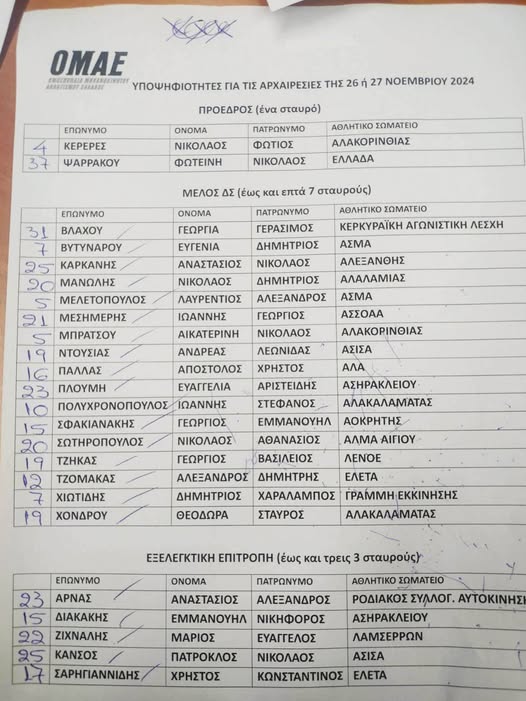 ΟΜΑΕ
ΟΜΟΣΠΟΝΔΙΑ ΜΗΧΑΝΟΚΙΝΗΤΟΥ
ΑΘΛΗΤΙΣΜΟΥ ΕΛΛΑΔΟΣ
ΥΠΟΨΗΦΙΟΤΗΤΕΣ ΓΙΑ ΤΙΣ ΑΡΧΑΙΡΕΣΙΕΣ ΤΗΣ 26 ή 27 ΝΟΕΜΒΡΙΟΥ 2024
ΠΡΟΕΔΡΟΣ (ένα σταυρό)
ΕΠΩΝΥΜΟ ΟΝΟΜΑ ΠΑΤΡΩΝΥΜΟ ΑΘΛΗΤΙΚΟ ΣΩΜΑΤΕΙΟ
4 ΚΕΡΕΡΕΣ ΝΙΚΟΛΑΟΣ ΦΩΤΙΟΣ ΑΛΑΚΟΡΙΝΘΙΑΣ
37 ΨΑΡΡΑΚΟΥ ΦΩΤΕΙΝΗ ΝΙΚΟΛΑΟΣ ΕΛΛΑΔΑ
ΜΕΛΟΣ ΔΣ (έως και επτά 7 σταυρούς)
ΕΠΩΝΥΜΟ ΟΝΟΜΑ ΠΑΤΡΩΝΥΜΟ ΑΘΛΗΤΙΚΟ ΣΩΜΑΤΕΙΟ
31 ΒΛΑΧΟΥ ΓΕΩΡΓΙΑ ΓΕΡΑΣΙΜΟΣ ΚΕΡΚΥΡΑΪΚΗ ΑΓΩΝΙΣΤΙΚΗ ΛΕΣΧΗ
7 ΒΥΤΥΝΑΡΟΥ ΕΥΓΕΝΙΑ ΔΗΜΗΤΡΙΟΣ ΑΣΜΑ
25 ΚΑΡΚΑΝΗΣ ΑΝΑΣΤΑΣΙΟΣ ΝΙΚΟΛΑΟΣ ΑΛΕΞΑΝΘΗΣ
20 ΜΑΝΩΛΗΣ ΝΙΚΟΛΑΟΣ ΔΗΜΗΤΡΙΟΣ ΑΛΑΛΑΜΙΑΣ
5 ΜΕΛΕΤΟΠΟΥΛΟΣ ΛΑΥΡΕΝΤΙΟΣ ΑΛΕΞΑΝΔΡΟΣ ΑΣΜΑ
21 ΜΕΣΗΜΕΡΗΣ ΙΩΑΝΝΗΣ ΓΕΩΡΓΙΟΣ ΑΣΣΟΑΑ
5 ΜΠΡΑΤΣΟΥ ΑΙΚΑΤΕΡΙΝΗ ΝΙΚΟΛΑΟΣ ΑΛΑΚΟΡΙΝΘΙΑΣ
19 ΝΤΟΥΣΙΑΣ ΑΝΔΡΕΑΣ ΛΕΩΝΙΔΑΣ ΑΣΙΣΑ
16 ΠΑΛΛΑΣ ΑΠΟΣΤΟΛΟΣ ΧΡΗΣΤΟΣ ΑΛΑ
23 ΠΛΟΥΜΗ ΕΥΑΓΓΕΛΙΑ ΑΡΙΣΤΕΙΔΗΣ ΑΣΗΡΑΚΛΕΙΟΥ
10 ΠΟΛΥΧΡΟΝΟΠΟΥΛΟΣ ΙΩΑΝΝΗΣ ΣΤΕΦΑΝΟΣ ΑΛΑΚΑΛΑΜΑΤΑΣ
15 ΣΦΑΚΙΑΝΑΚΗΣ ΓΕΩΡΓΙΟΣ ΕΜΜΑΝΟΥΗΛ ΑΟΚΡΗΤΗΣ
20 ΣΩΤΗΡΟΠΟΥΛΟΣ ΝΙΚΟΛΑΟΣ ΑΘΑΝΑΣΙΟΣ ΑΛΜΑ ΑΙΓΙΟΥ
19 ΤΖΗΚΑΣ ΓΕΩΡΓΙΟΣ ΒΑΣΙΛΕΙΟΣ ΛΕΝΟΕ
12 ΤΖΟΜΑΚΑΣ ΑΛΕΞΑΝΔΡΟΣ ΔΗΜΗΤΡΗΣ ΕΛΕΤΑ
7 ΧΙΩΤΙΔΗΣ ΔΗΜΗΤΡΙΟΣ ΧΑΡΑΛΑΜΠΟΣ ΓΡΑΜΜΗ ΕΚΚΙΝΗΣΗΣ
19 ΧΟΝΔΡΟΥ ΘΕΟΔΩΡΑ ΣΤΑΥΡΟΣ ΑΛΑΚΑΛΑΜΑΤΑΣ
ΕΞΕΛΕΓΚΤΙΚΗ ΕΠΙΤΡΟΠΗ (έως και τρεις 3 σταυρούς)
ΕΠΩΝΥΜΟ ΟΝΟΜΑ ΠΑΤΡΩΝΥΜΟ ΑΘΛΗΤΙΚΟ ΣΩΜΑΤΕΙΟ
23 ΑΡΝΑΣ ΑΝΑΣΤΑΣΙΟΣ ΑΛΕΞΑΝΔΡΟΣ ΡΟΔΙΑΚΟΣ ΣΥΛΛΟΓ. ΑΥΤΟΚΙΝΗΣ
15 ΔΙΑΚΑΚΗΣ ΕΜΜΑΝΟΥΗΛ ΝΙΚΗΦΟΡΟΣ ΑΣΗΡΑΚΛΕΙΟΥ
22 ΖΙΧΝΑΛΗΣ ΜΑΡΙΟΣ ΕΥΑΓΓΕΛΟΣ ΛΑΜΣΕΡΡΩΝ
25 ΚΑΝΣΟΣ ΠΑΤΡΟΚΛΟΣ ΝΙΚΟΛΑΟΣ ΑΣΙΣΑ
17 ΣΑΡΗΓΙΑΝΝΙΔΗΣ ΧΡΗΣΤΟΣ ΚΩΝΣΤΑΝΤΙΝΟΣ ΕΛΕΤΑ